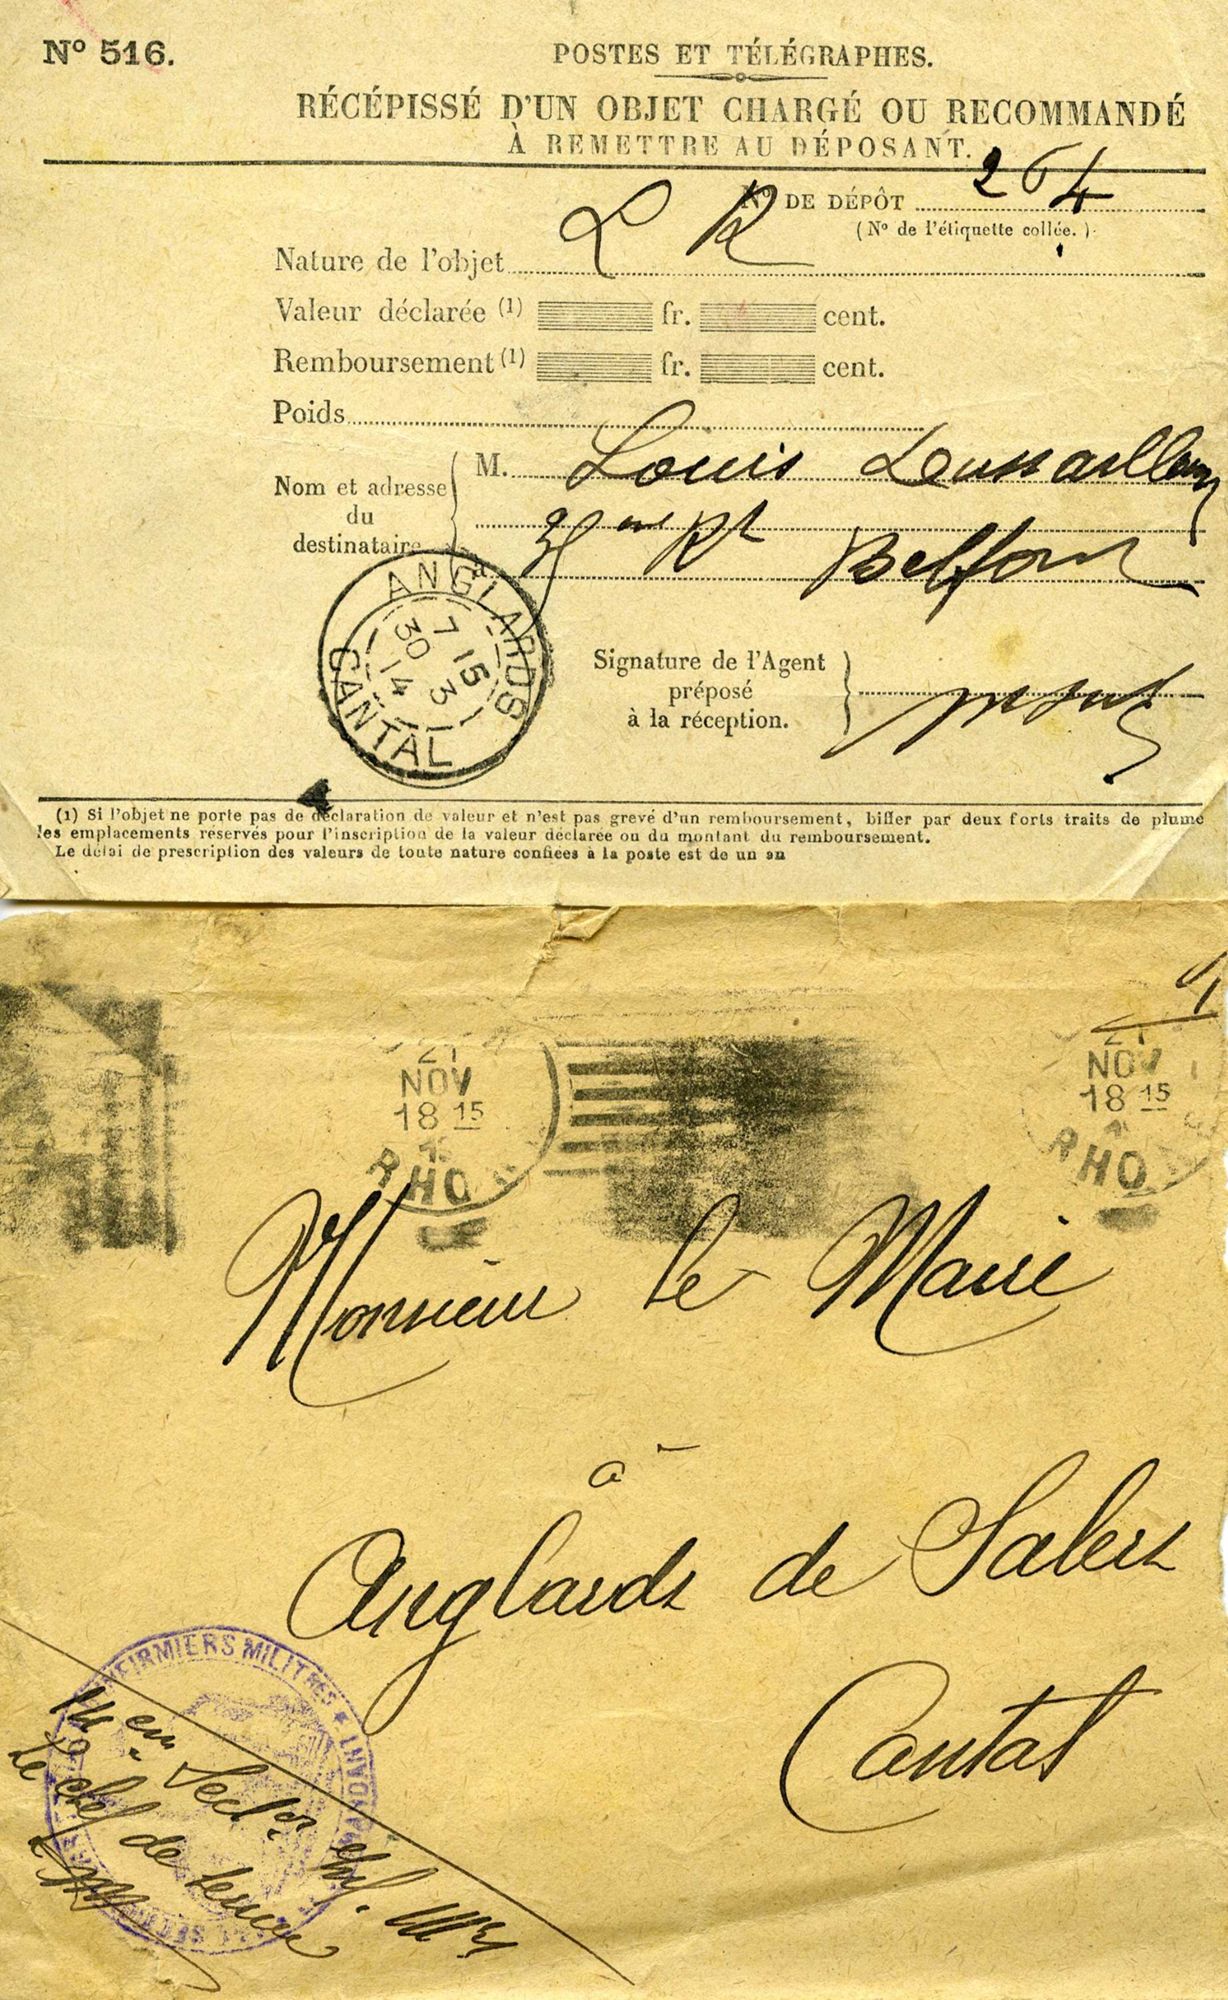 Nº 516.
POSTES ET TÉLÉGRAPHES.
RÉCÉPISSÉ D'UN OBJET CHARGÉ OU RECOMMANDÉ
À REMETTRE AU DÉPOSANT.
Nº DE DÉPÔT 264
(Nº de l'étiquette collée.)
Nature de l'objet L R
Valeur déclarée (1) fr. cent.
Remboursement (1) fr. cent.
Poids
Nom et adresse du destinataire
M. Louis
35 eme Rt Belfort
à
ANGLARDS
7 15
30 3
14
CANTAL
Signature de l'Agent
préposé
à la réception.
(1) Si l'objet ne porte pas de déclaration de valeur et n'est pas grevé d'un remboursement, biffer par deux forts traits de plume
les emplacements réservés pour l'inscription de la valeur déclarée ou du montant du remboursement.
Le délai de prescription des valeurs de toute nature confiées à la poste est de un an
21
NOV
18 15
RHO
21
NOV
18 15
RHO
Monsieur le Maire
à
Anglards de Salers
Cantal
INFIRMIERS MILITRES
14 eme Secton
Le chef de